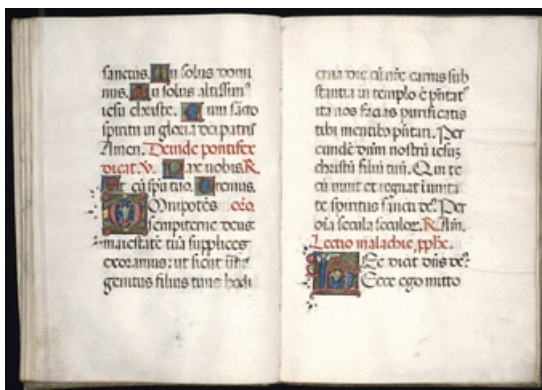 sanctus. Tu solus domi
nus. Tu solus altissim'
iesu christe. Cum sc̄to
spiritu in gloria dei patris
Amen. Deinde pontifex
dicat. V. Pax uobis. R.
Et cū sp̄u tuo. Oremus.
Omnipotēs oro.
sempiterne deus:
maiestatē tuā supplices
exoramus: ut sicut
genitus filius tuus hodi
erna die cū nr̄e carnis sub
stantia in templo ē p̄ntat'
ita nos facias purificatis
tibi mentibꝰ p̄ntari. Per
eundē dn̄m nostrū iesuꝫ
christū filiū tuū. Qui te
cū uiuit et regnat ī unita
te spiritus sancti de'. Per
oīa secula seculoꝝ. R. Am̄.
Lectio malachie, pphe.
Hec dicit dn̄s de'.
Ecce ego mitto